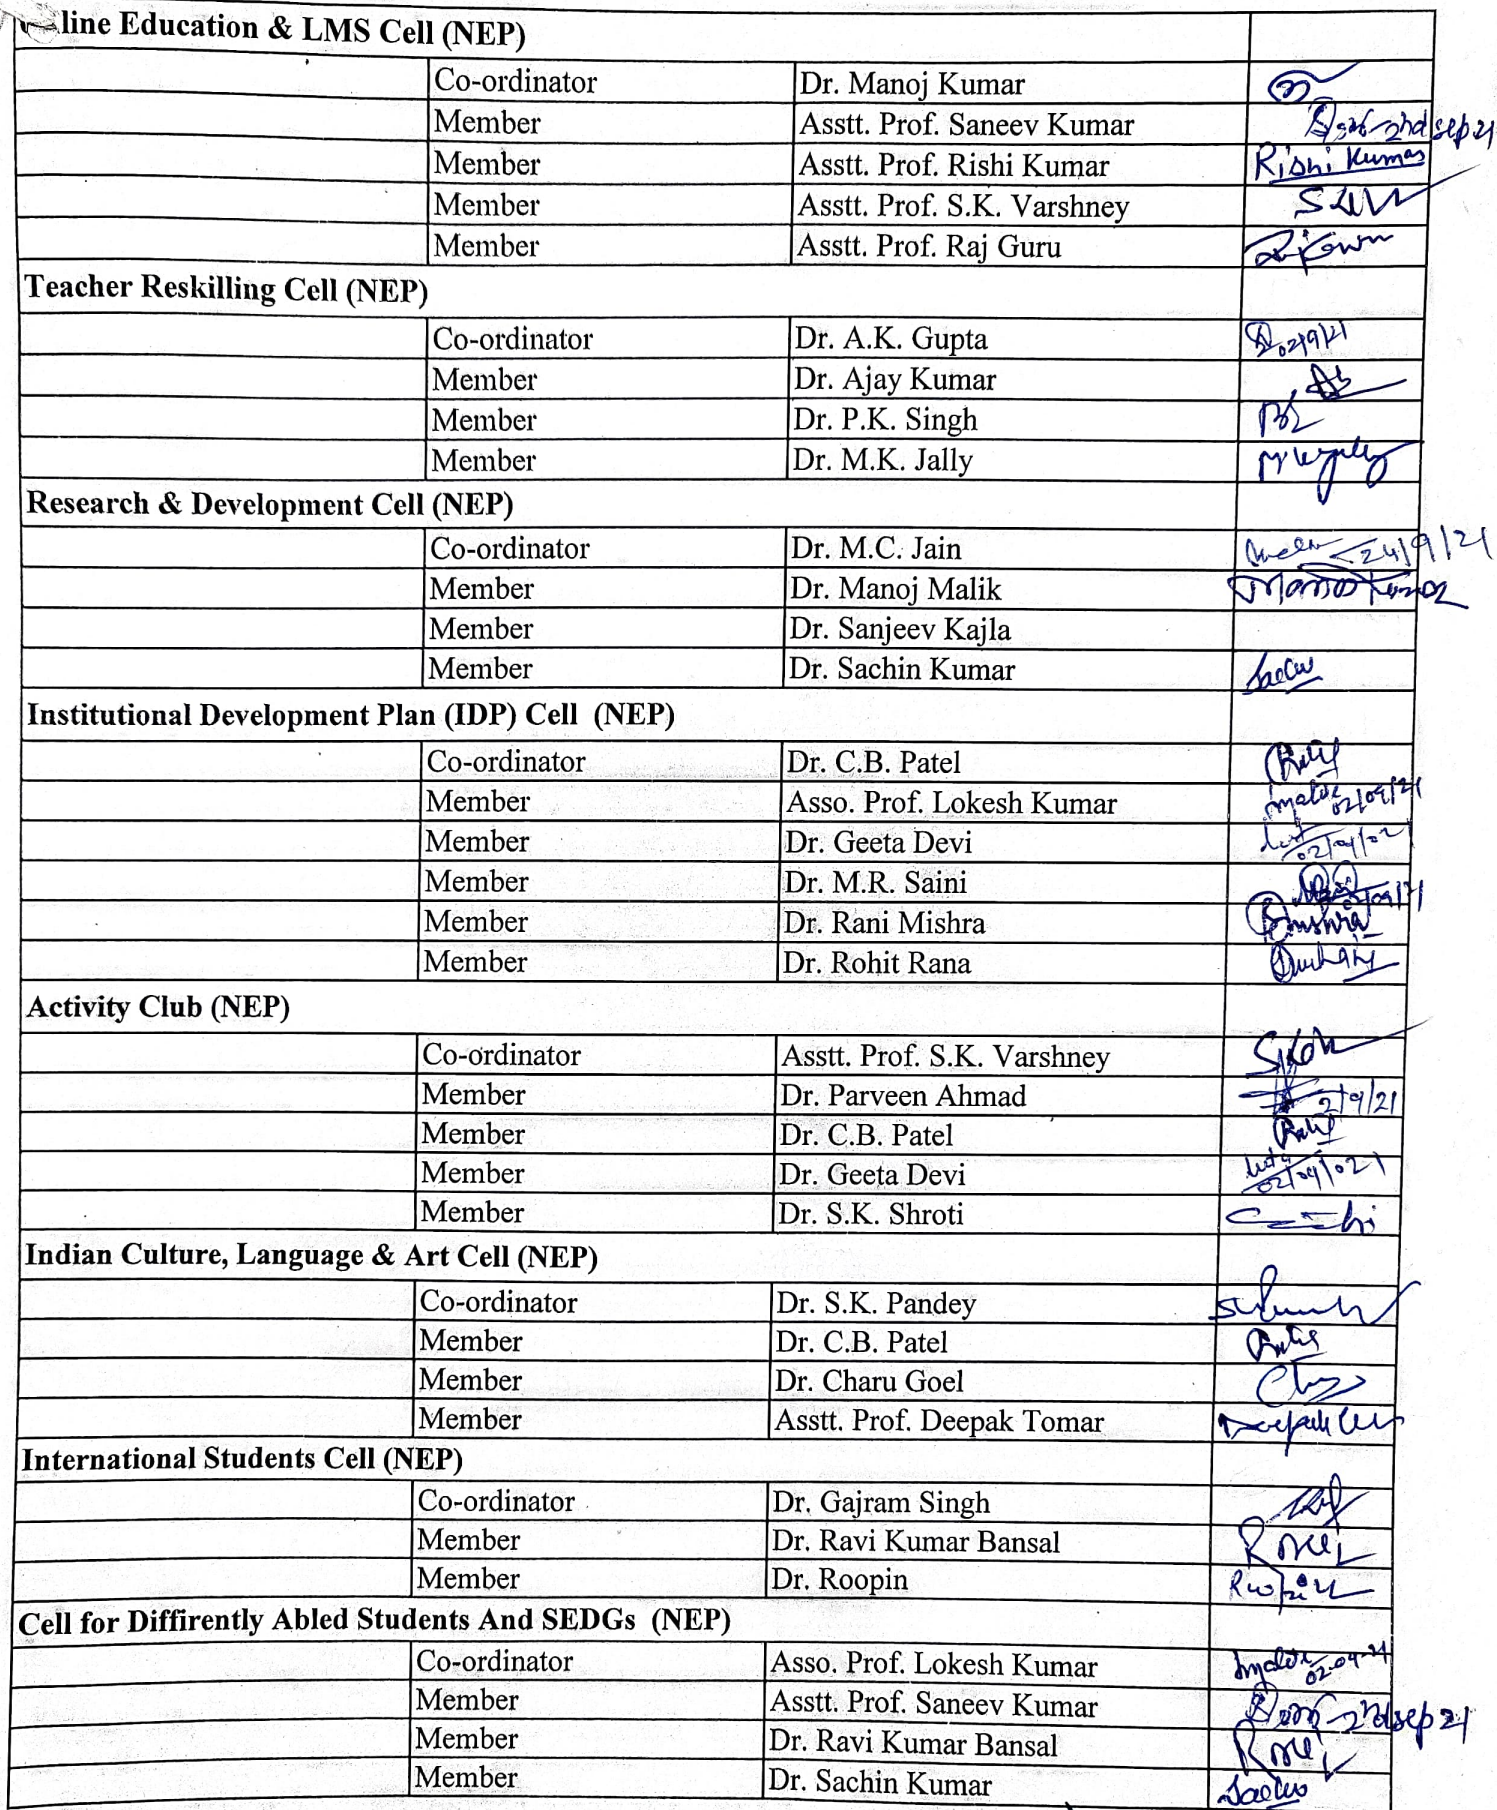 line Education & LMS Cell (NEP)
Co-ordinator Dr. Manoj Kumar
Member Asstt. Prof. Saneev Kumar 2nd sep 21
Member Asstt. Prof. Rishi Kumar Rishi Kumar
Member Asstt. Prof. S.K. Varshney
Member Asstt. Prof. Raj Guru
Teacher Reskilling Cell (NEP)
Co-ordinator Dr. A.K. Gupta 02/9/21
Member Dr. Ajay Kumar
Member Dr. P.K. Singh
Member Dr. M.K. Jally
Research & Development Cell (NEP)
Co-ordinator Dr. M.C. Jain 24/9/21
Member Dr. Manoj Malik
Member Dr. Sanjeev Kajla
Member Dr. Sachin Kumar
Institutional Development Plan (IDP) Cell (NEP)
Co-ordinator Dr. C.B. Patel
Member Asso. Prof. Lokesh Kumar 02/09/21
Member Dr. Geeta Devi
Member Dr. M.R. Saini
Member Dr. Rani Mishra
Member Dr. Rohit Rana
Activity Club (NEP)
Co-ordinator Asstt. Prof. S.K. Varshney
Member Dr. Parveen Ahmad 2/9/21
Member Dr. C.B. Patel
Member Dr. Geeta Devi
Member Dr. S.K. Shroti
Indian Culture, Language & Art Cell (NEP)
Co-ordinator Dr. S.K. Pandey
Member Dr. C.B. Patel
Member Dr. Charu Goel
Member Asstt. Prof. Deepak Tomar
International Students Cell (NEP)
Co-ordinator Dr. Gajram Singh
Member Dr. Ravi Kumar Bansal
Member Dr. Roopin
Cell for Diffirently Abled Students And SEDGs (NEP)
Co-ordinator Asso. Prof. Lokesh Kumar 02-09-21
Member Asstt. Prof. Saneev Kumar 2nd sep 21
Member Dr. Ravi Kumar Bansal
Member Dr. Sachin Kumar